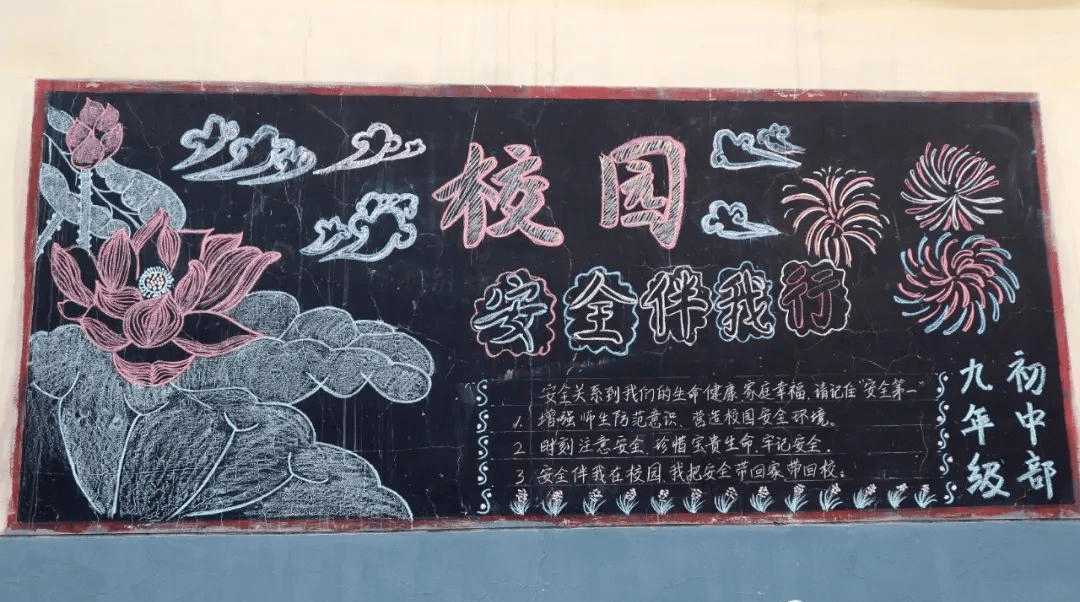 校园
安全伴我行
安全关系到我们的生命健康、家庭幸福、请记住“安全第一”
1. 增强师生防范意识、营造校园安全环境。
2. 时刻注意安全、珍惜宝贵生命、牢记安全.
3. 安全伴我在校园、我把安全带回家、带回校。
初中部
九年级